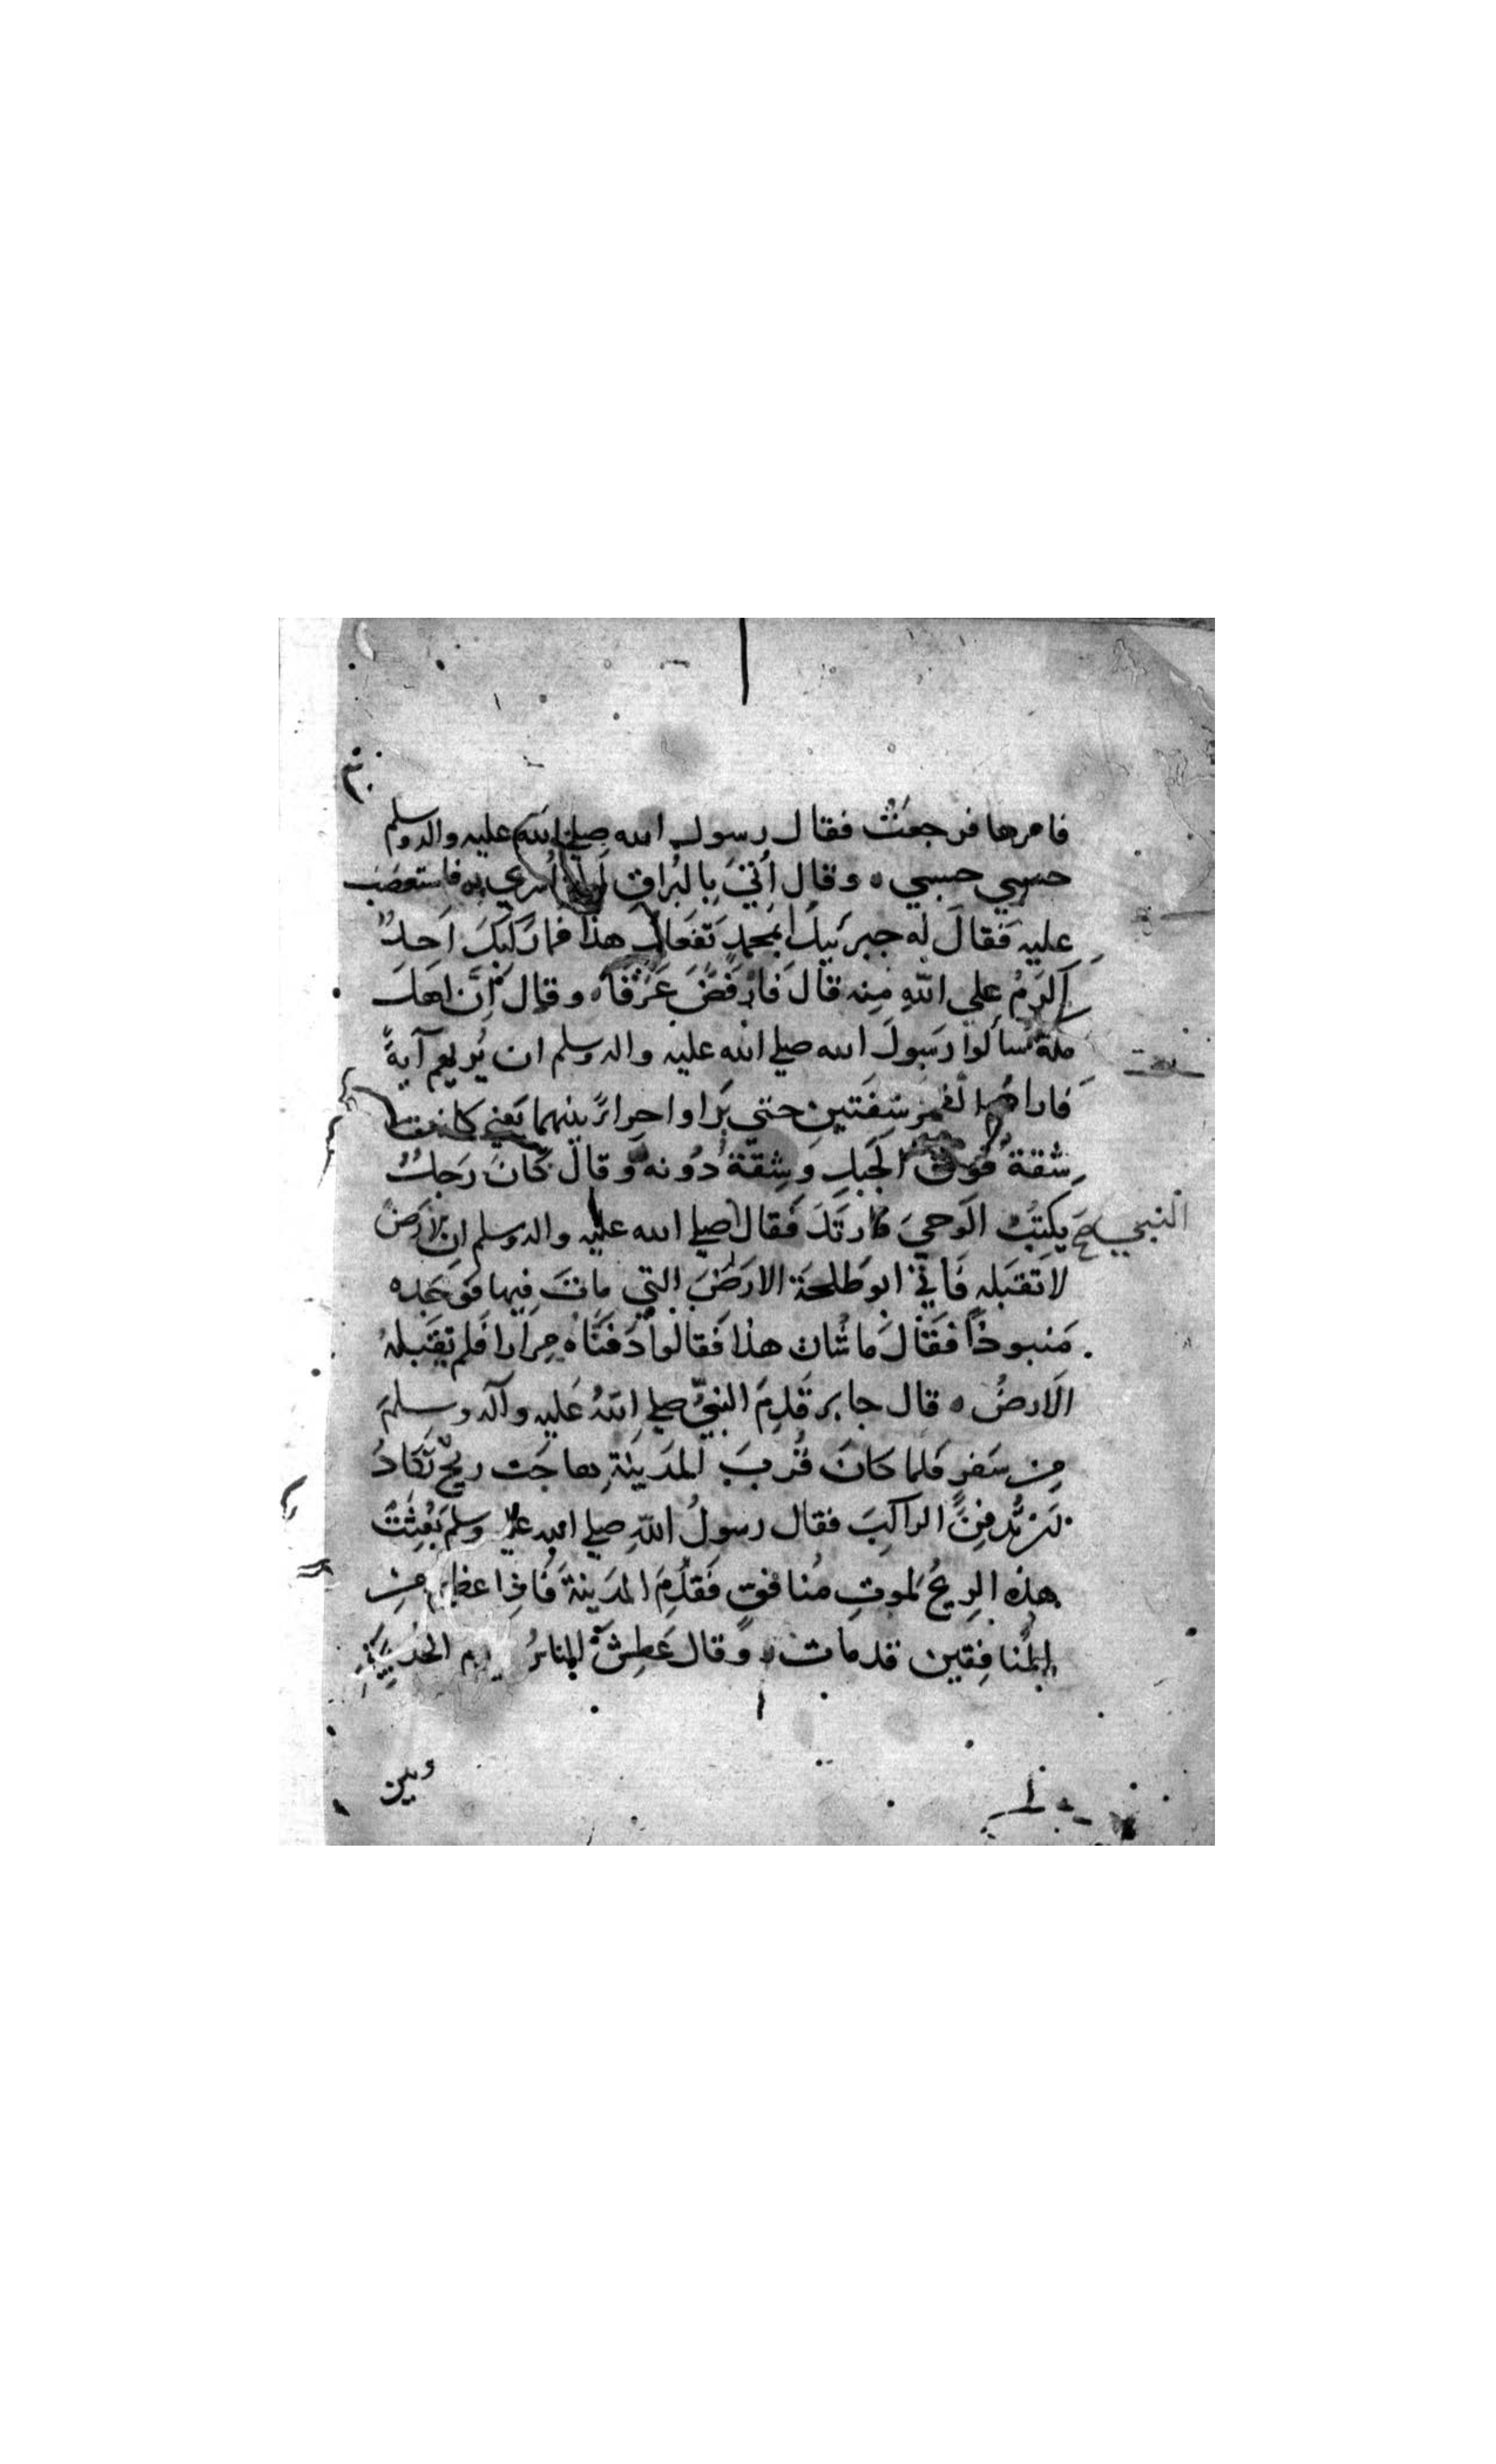 فامرها فرجعت فقال رسول الله صلي الله عليه واله وسلم
حسبي حسبي ه وقال أُتِيَ بالبُراق ليلة أُسري به فاستصعب
عليه فقالَ له جبرَئيلُ أبمحمدٍ تَفعَل هذا فما رَكبَكَ اَحدٌ
اَكرَمُ علي اللهِ مِنه قالَ فارفَضَّ عَرَقًا ه وقال اِنَّ اهلَ
مكة سألوا رسَولَ الله صلي الله عليه واله وسلم ان يُريهم آيةً
فاراهُم القمر شِقتينِ حتي رَاوا حِراءً بينهما يَعني كانت
شِقةٌ فوق الجَبلِ وشِقةٌ دُونه وقال كانَ رَجلٌ
يكتبُ الوَحيَ فارتَدَّ فقال صلي الله عليه واله وسلم ان الارضَ
النبي صح
لا تَقبَله فَأتي ابو طَلحَة الارَضَ التي ماتَ فيها فوَجَده
مَنبوذًا فقالَ ما شَان هذا فقالوا دَفنَّاه مِرارًا فلم تقبَلهُ
الَارضُ ه قال جابر قَدِمَ النبيُّ صلي اللهُ عَليه وآله وسلمَ
مِن سَفرٍ فلما كانَ قُربَ المدَينَةِ هاجَت ريحٌ تكَادُ
اَن تدفِنَ الراكِبَ فقال رسولُ اللهِ صلي الله عليه وسلم بُعِثَت
هذه الرِيحُ لموتِ مُنافقٍ فقَدِمَ المدَينةَ فَاِذا عظيم مِن
المنافِقين قد مات ه وقال عَطِشَ الناسُ يوم الحُدَيبيَةِ
وبين